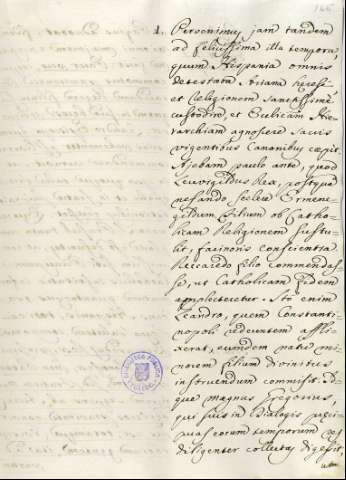 145
1. Pervenimus jam tandem
ad felicissima illa tempora,
quum Hispania omnis
detestata Ariam heresi
et Religionem Sanctissimè
custodire, et Eccl.icam Hie-
rarchiam agnoscere sacris
vigentibus Canonibus cœpit.
Ajebam paulo ante, quod
Leuvigildus Rex, postquà
nefando scelere Ermene-
gildum filium ob Catho-
licam Religionem sustu-
lit, facinoris conscientia
Reccaredo filio commendas-
se, ut Catholicam fidem
amplecteretur. Sto enim
Leandro, quem Constanti-
nopoli redeuntem affli-
xerat, eundem natu mi-
norem filium divinitus
instruendum commisit. A-
quo magnus Gregorius,
qui suis in Dialogis preci-
puas eorum temporum res
diligenter collectas digessit,
BIBLIOTECA PUBLICA
TOLEDO